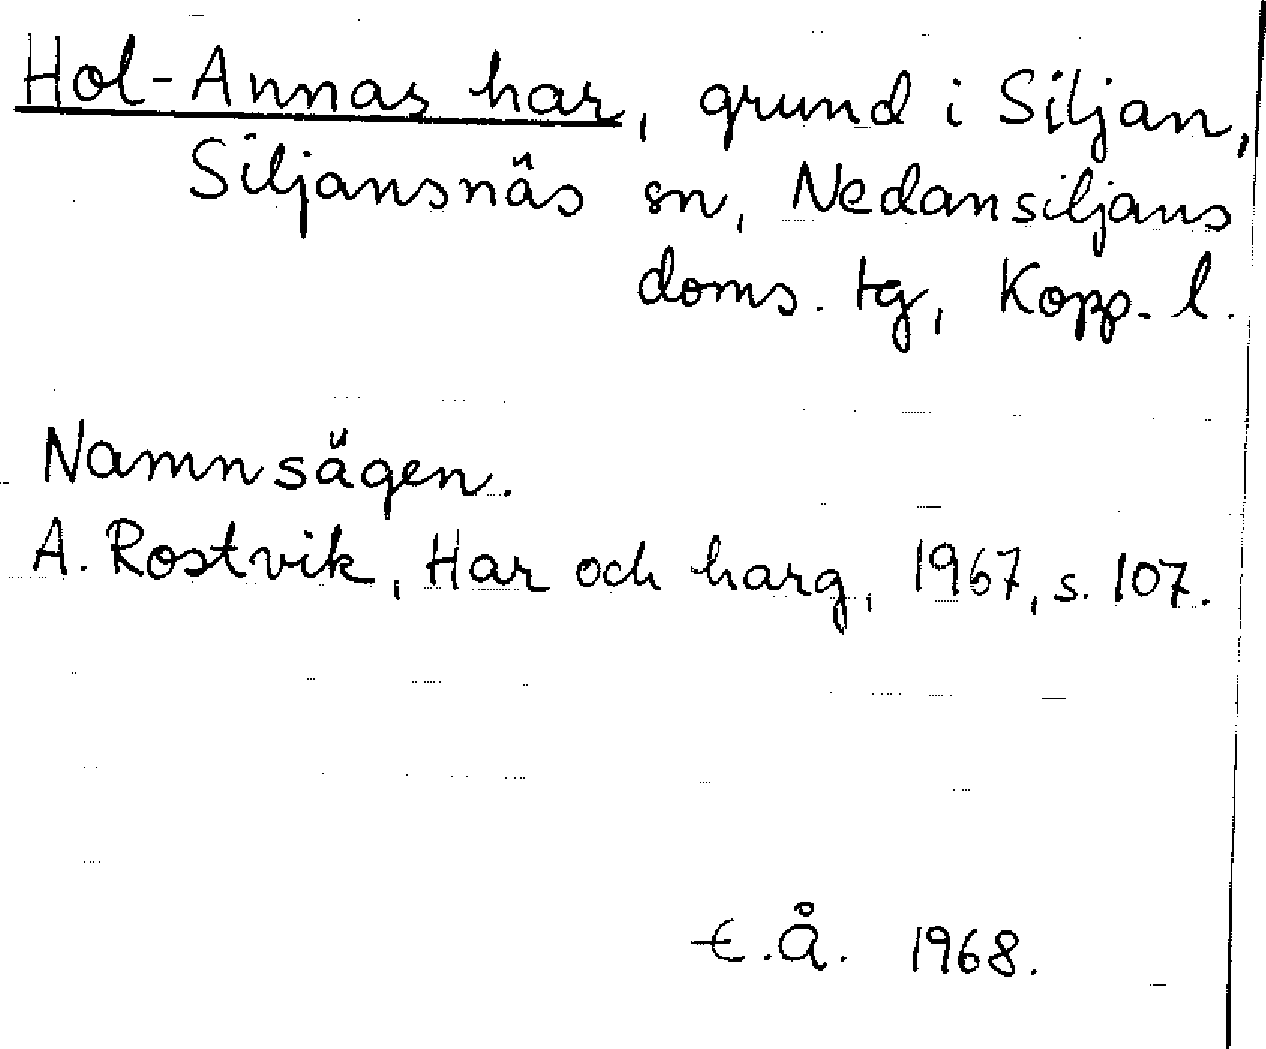 Hol-Annas har, grund i Siljan,
Siljansnäs sn, Nedansiljans
doms. tg, Kopp. l.
Namnsägen.
A. Rostvik, Har och harg, 1967, s. 107.
E.Å. 1968.